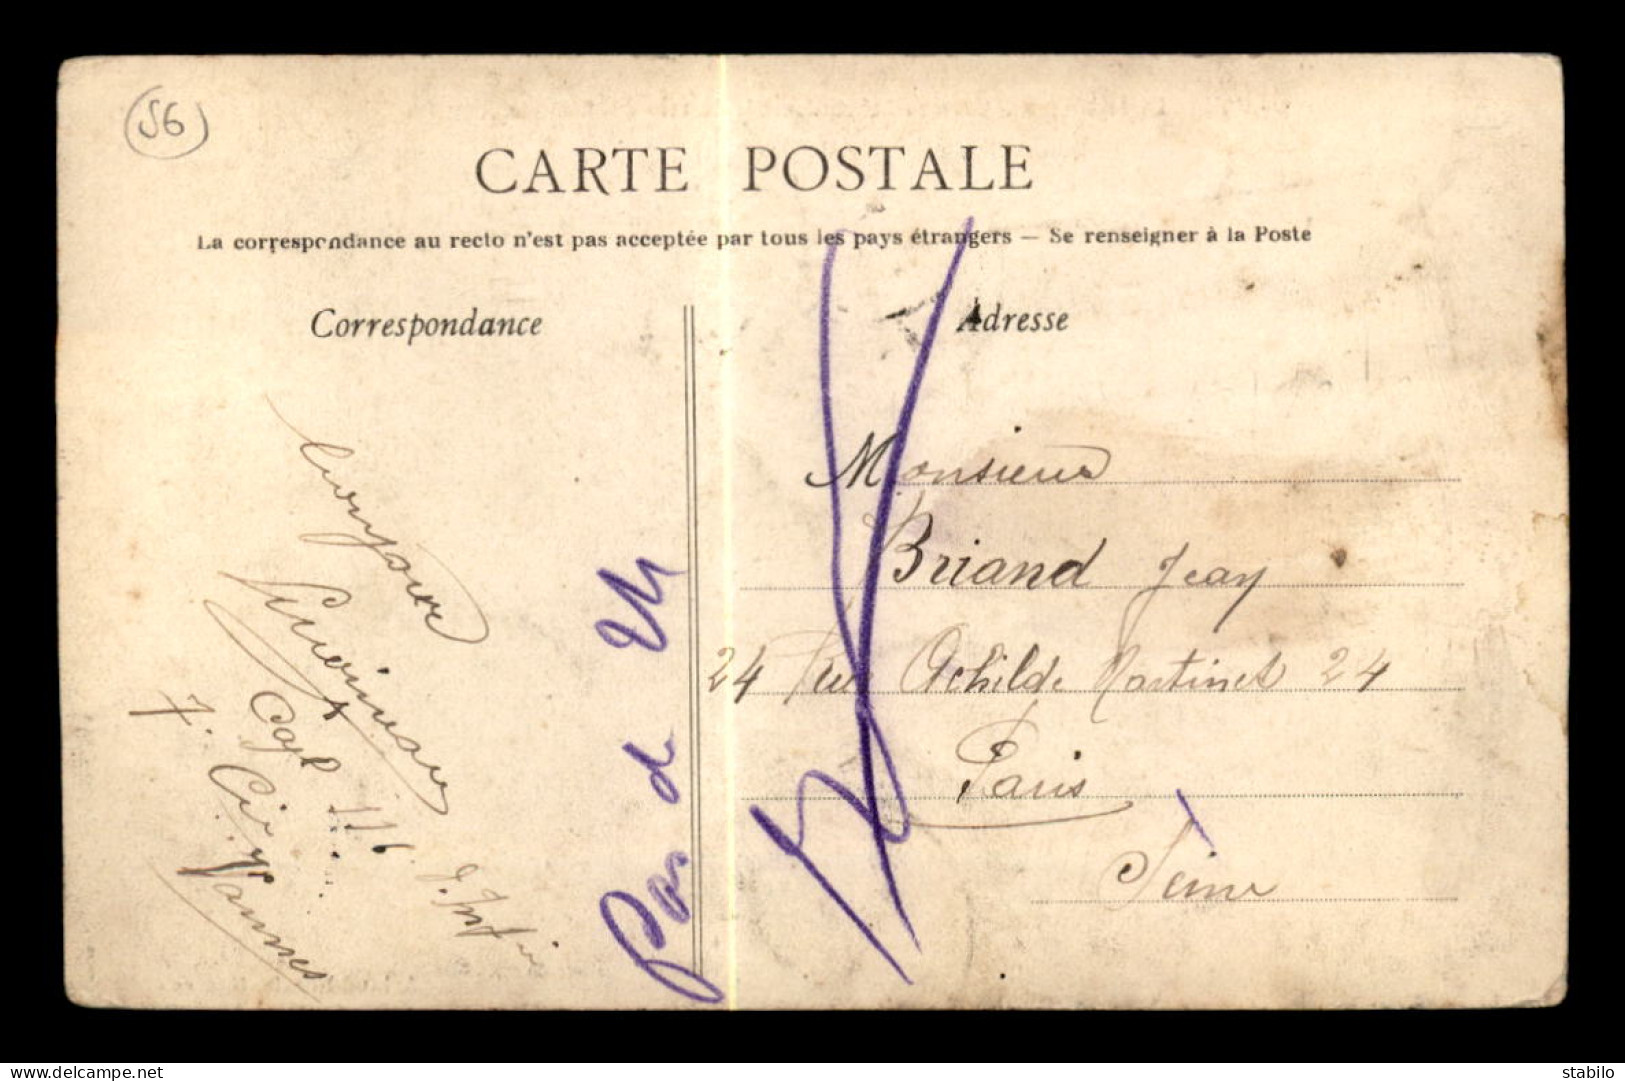 56
CARTE POSTALE
La correspondance au recto n'est pas acceptée par tous les pays étrangers — Se renseigner à la Poste
Correspondance
Adresse
bonjour
Capl 116 d'Inf
7. Cie
Vannes
Monsieur
Briand Jean
24 Rue Achilde Martinet 24
Paris
Seine
delcampe.net
stabilo